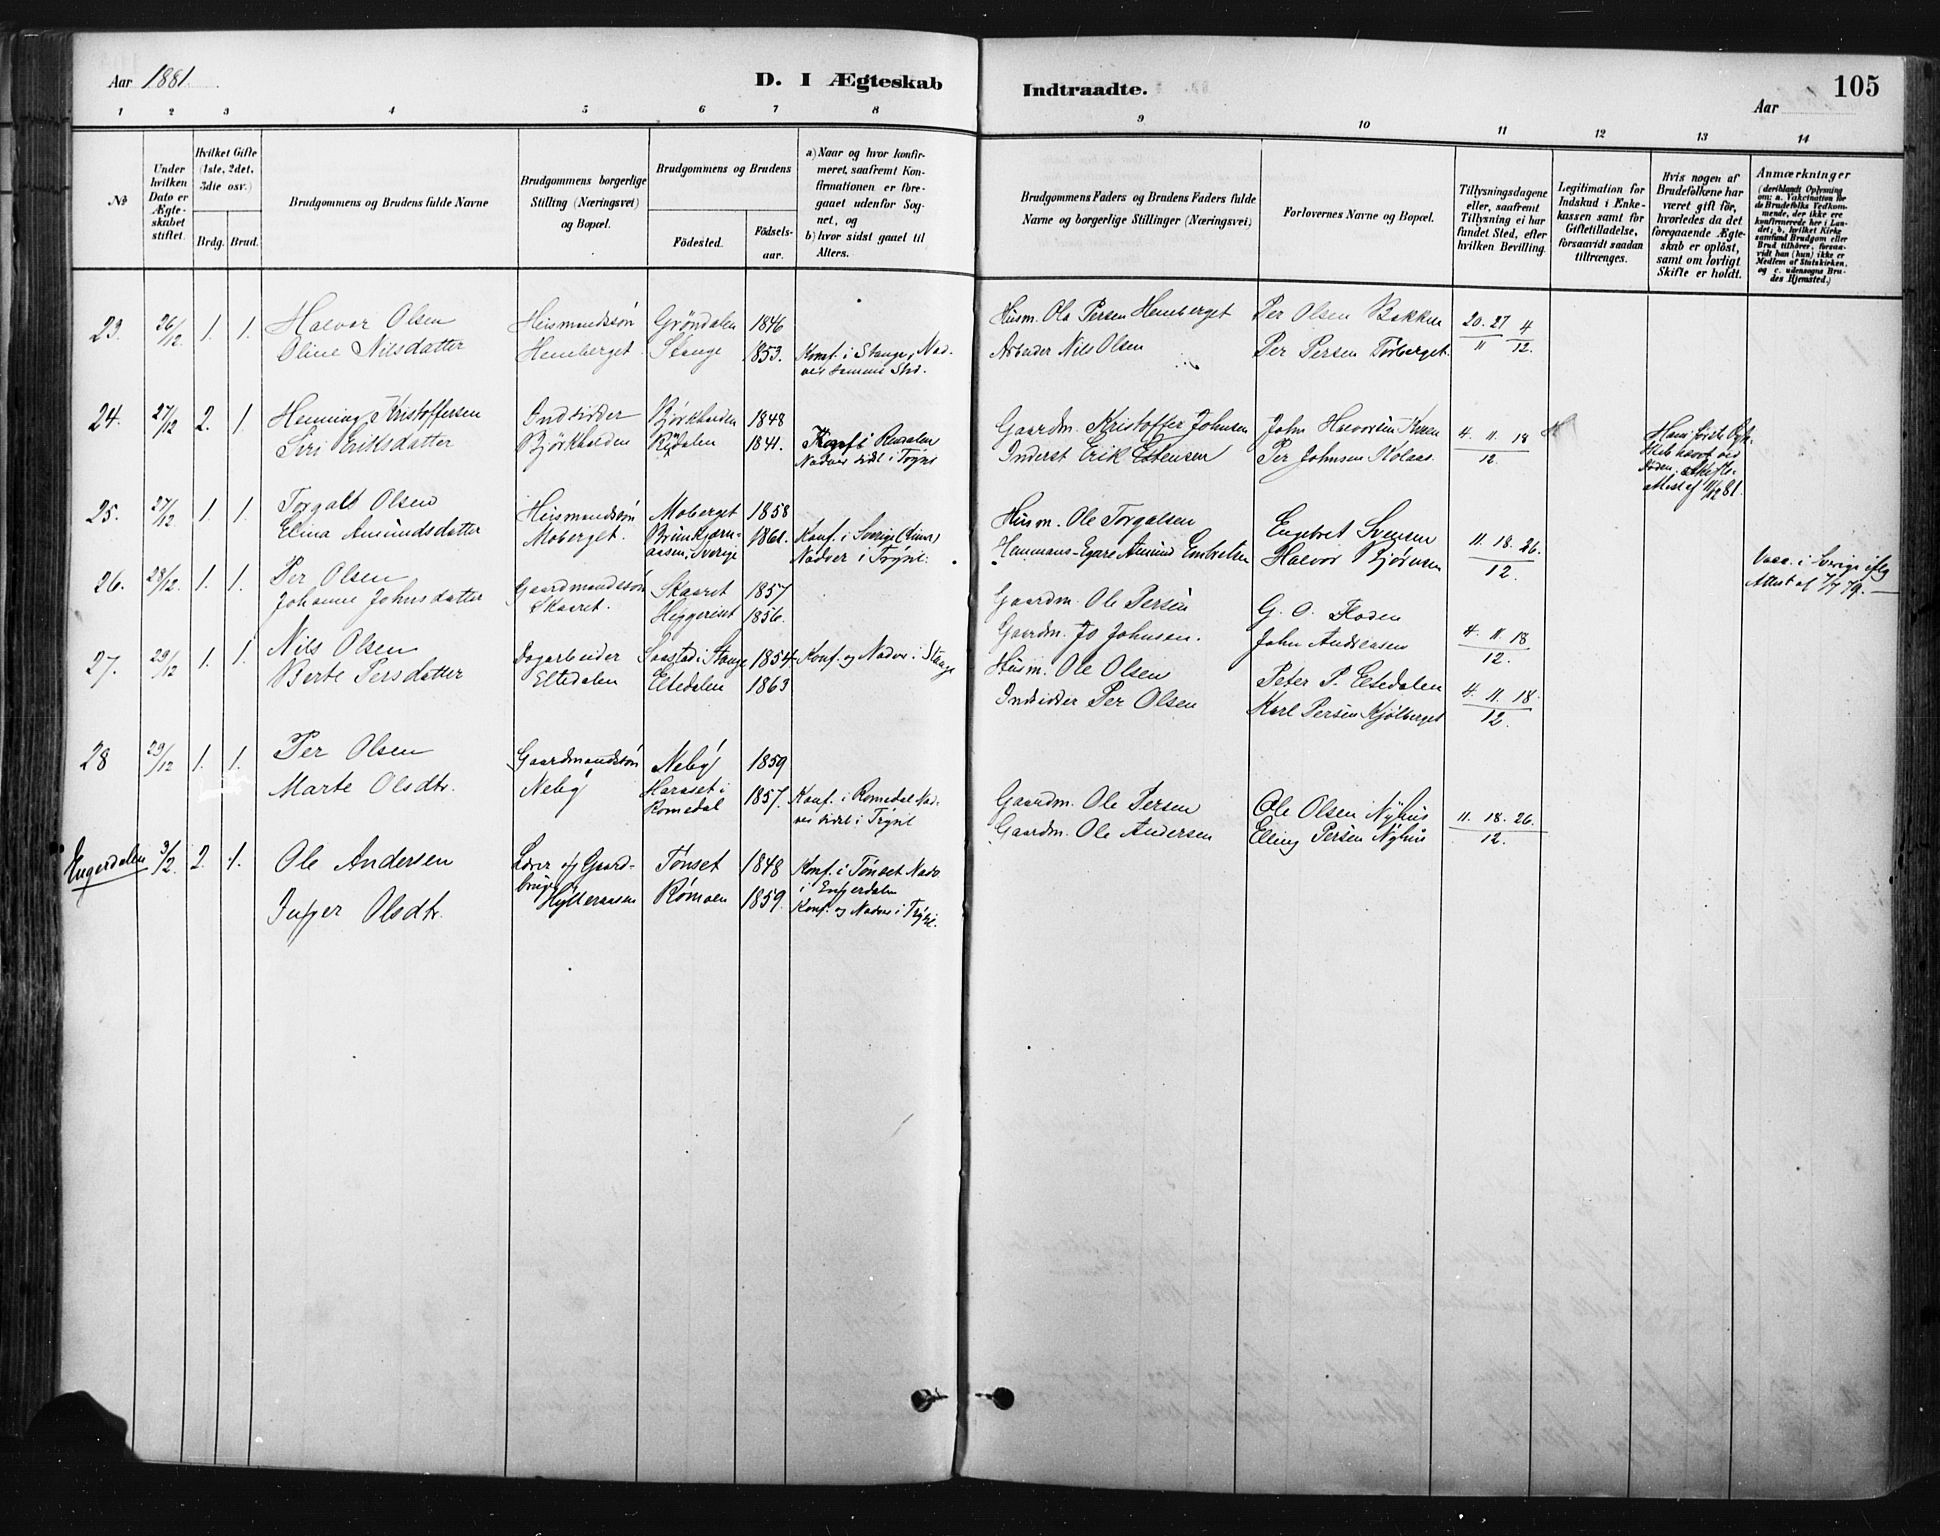 Aar 1881.
D. I Ægteskab
Indtraadte.
105
Aar
1 2 3 4 5 6 7 8
9 10 11 12 13 14
No
Under hvilken Dato er Ægteskabet stiftet.
Hvilket Gifte (1ste, 2det, 3die osv.)
Brdg. Brud.
Brudgommens og Brudens fulde Navne
Brudgommens borgerlige Stilling (Næringsvei) og Bopæl.
Brudgommens og Brudens
Fødested.
Fødselsaar.
a) Naar og hvor konfirmeret, saafremt Konfirmationen er foregaaet udenfor Sognet, og
b) hvor sidst gaaet til Alters.
Brudgommens Faders og Brudens Faders fulde Navne og borgerlige Stillinger (Næringsvei)
Forlovernes Navne og Bopæl.
Tillysningsdagene eller, saafremt Tillysning ei har fundet Sted, efter hvilken Bevilling.
Legitimation for Indskud i Enkekassen samt for Giftetilladelse, forsaavidt saadan tiltrænges.
Hvis nogen af Brudefolkene har været gift før, hvorledes da det foregaaende Ægteskab er opløst, samt om lovligt Skifte er holdt.
Anmærkninger
(deriblandt Oplysning om: a. Vaccination for de Brudefolks Vedkommende, der ikke ere konfirmerede her i Landet; b. hvilket Kirkesamfund Brudgom eller Brud tilhører, forsaavidt han (hun) ikke er Medlem af Statskirken, og c. udensogns Brudes Hjemsted.)
23. 26/12 1. 1. Halvor Olsen Husmandssøn Grøndalen 1846 Husm. Ola Persen Hemberget Per Olsen Bakken 20. 27 4
Oline Nilsdatter Hemberget. Stange 1853. Konf. i Stange, Nadver samme Std. Arbeider Nils Olsen Per Persen Torberget. 11 12.
24. 27/12 2. 1. Henning Kristoffersen Indsidder Bjørkhalden 1848 Gaardm. Kristoffer Johnsen John Halvorsen 4. 11. 18
Siri Eriksdatter Bjørkhalden 1841. Konf i Rendalen Nadver sidst i Trysil Inderst Erik Estensen Per Johnsen 12. Hans første
25. 27/12 1. 1. Torgalt Olsen Husmandssøn Moberget 1858 Husm. Ole Torgalsen Engebret Svensen 11. 18. 26.
Elina Amundsdatter Moberget. Sverige 1861. Konf. i Sverige Nadver i Trysil. Hemmans-Egare Amund Embretsen Halvor Bjørnsen 12. Vacc. i Sverige iflg Attest af 7/7 79.
26. 28/12. 1. 1. Per Olsen Gaardmandssøn Skaaret 1857 Gaardm. Ole Persen G. O. Floden
Johanne Johnsdatter Skaaret. 1856. Gaardm. Jo Johnsen. John Andreasen 4. 11. 18 12.
27. 29/12 1. 1. Nils Olsen Dagarbeider Saastad i Stange 1854 Konf. og Nadv. i Stange Husm. Ole Olsen Peter P. Eltedalen 4. 11. 18.
Berte Persdatter Eltedalen Eltedalen 1863 Indsidder Per Olsen Karl Persen Kjølberget 12.
28 29/12 1. 1. Per Olsen Gaardmandssøn Neby 1859 Gaardm. Ole Persen Ole Olsen Nyhus 11. 18. 26.
Marte Olsdtr. Neby Haraset i Romedal 1857. Konf. i Romedal Nadver sidst i Trysil Gaardm. Ole Andersen Elling Persen Nyhus 12.
Engerdalen 3/2. 2. 1. Ole Andersen Lærer og Gaardbruger Tønset 1848 Konf. i Tønset Nadv i Engerdalen
Inger Olsdtr. Hylleraasen Rømoen 1859. Konf. og Nadver i Trysil.